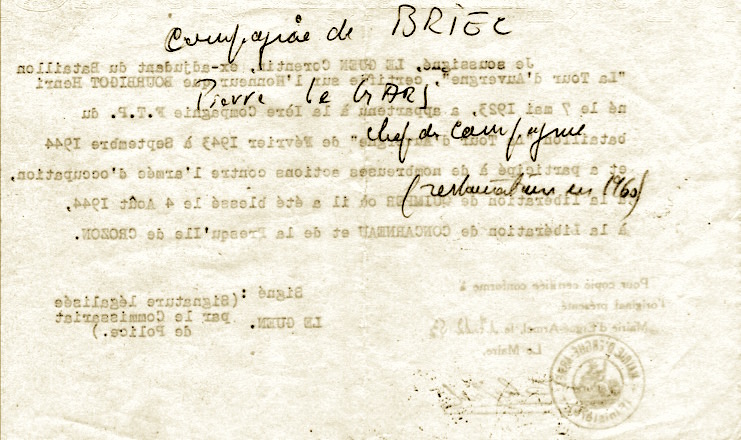 Compagnie de BRIEC
Je soussigné, LE GUEN Corentin, ex-adjudent du Bataillon
"La Tour d'Auvergne", certifie sur l'Honneur que BOURBIGOT Henri
Pierre le GARS
né le 7 mai 1923, a appartenu à la Ière Compagnie F.T.P. du
chef de compagnie
bataillon "La Tour d'Auvergne" de Février 1943 à Septembre 1944
et a participé à de nombreuses actions contre l'armée d'occupation,
(restaurateur en 1960)
à la libération de QUIMPER où il a été blessé le 4 Août 1944,
à la Libération de CONCARNEAU et de la Presqu'Ile de CROZON.
Signé : (Signature légalisée
LE GUEN. par le Commissariat
de Police.)
Pour copie certifiée conforme à
l'original présenté
Mairie d'Ergué-Armel, le
Le Maire.